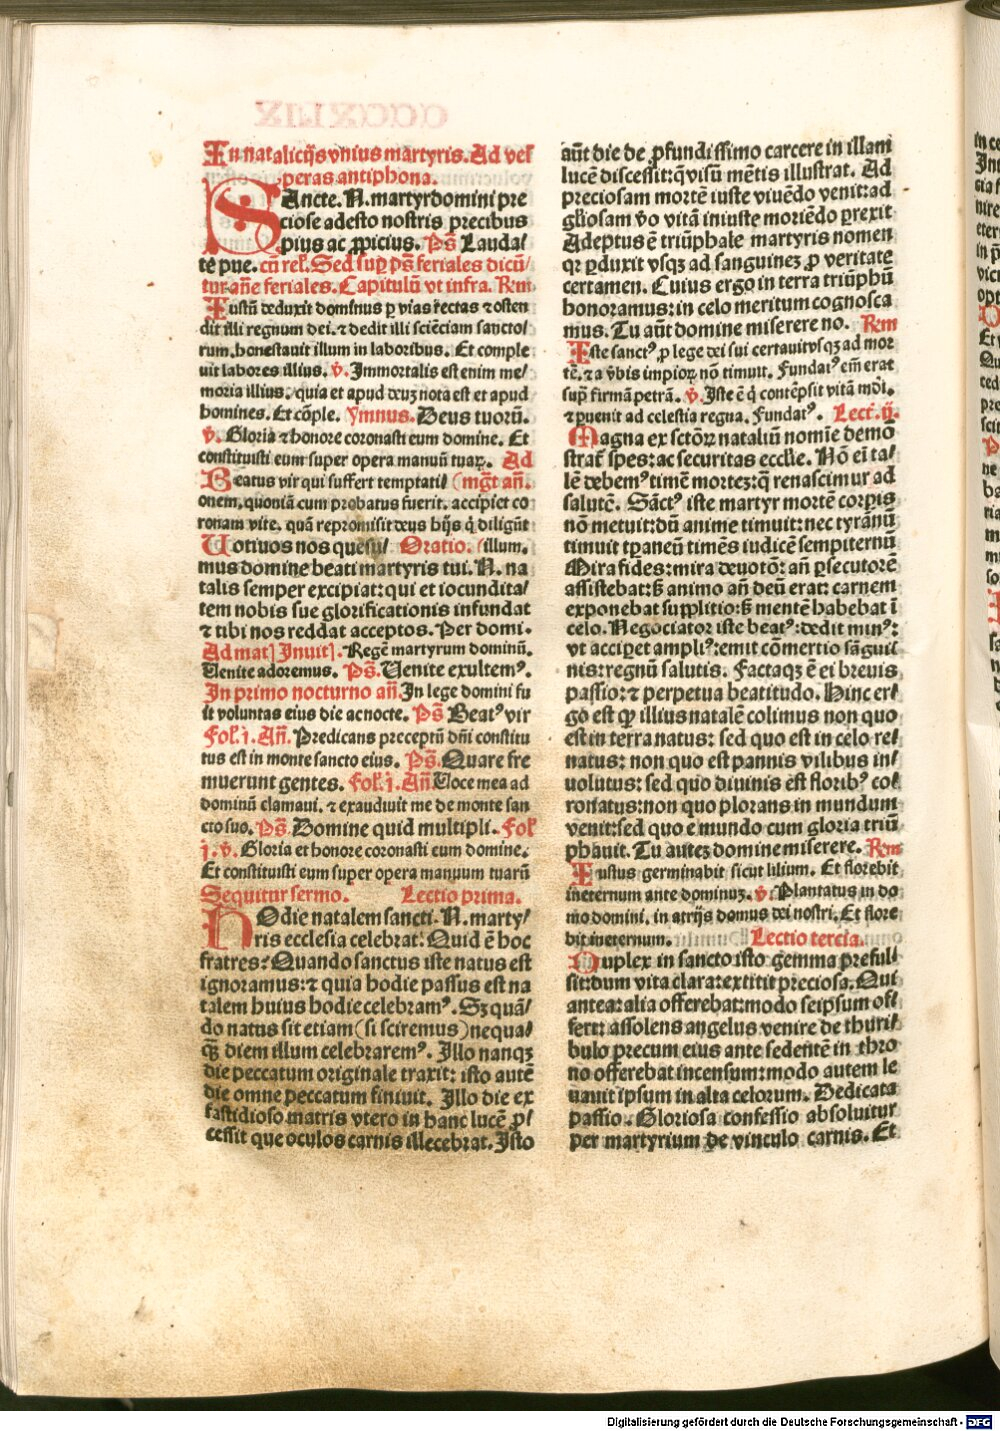 In natalicijs vnius martyris. Ad ves
peras antiphona.
SAncte. N. martyr domini pre
ciose adesto nostris precibus
pius ac ꝓpicius. Ps̄ Lauda/
te pue. cū rel. Sed suꝑ ps̄ feriales dicū/
tur an̄e feriales. Capitulū vt infra. Rm̄
Iustū deduxit dominus ꝑ vias rectas ⁊ osten
dit illi regnum dei. ⁊ dedit illi sciēciam sancto/
rum. honestauit illum in laboribus. Et comple
uit labores illius. v̄. Immortalis est enim me/
moria illius. quia et apud deuꝫ nota est et apud
homines. Et cōple. Ymnus. Deus tuorū.
v̄. Gloria ⁊ honore coronasti eum domine. Et
constituisti eum super opera manuū tuaꝝ. Ad
Beatus vir qui suffert temptati/ (mgt̄ an̄.
onem, quoniā cum probatus fuerit. accipiet co
ronam vite. quā repromisit deus hijs q̄ diligūt
Uotiuos nos quesu/ Oratio. (illum.
mus domine beati martyris tui. N. na
talis semper excipiat: qui et iocundita/
tem nobis sue glorificationis infundat
⁊ tibi nos reddat acceptos. Per domi.
Ad mat] Inuit]. Regē martyrum dominū.
Uenite adoremus. Ps̄. Uenite exultemꝰ.
In primo nocturno an̄ In lege domini fu
it voluntas eius die ac nocte. Ps̄ Beatꝰ vir
Fol. i. An̄. Predicans preceptū dn̄i constitu
tus est in monte sancto eius. Ps̄. Quare fre
muerunt gentes. Fol. j. An̄ Uoce mea ad
dominū clamaui. ⁊ exaudiuit me de monte san
cto suo. Ps̄. Domine quid multipli. Fol
j. v̄. Gloria et honore coronasti eum domine.
Et constituisti eum super opera manuum tuarū
Sequitur sermo. Lectio prima.
HOdie natalem sancti. N. marty/
ris ecclesia celebrat. Quid ē hoc
fratres? Quando sanctus iste natus est
ignoramus: ⁊ quia hodie passus est na
talem huius hodie celebramꝰ. Sꝫ quā/
do natus sit etiam (si sciremus) nequa/
qꝫ̄ diem illum celebraremꝰ. Illo nanqꝫ
die peccatum originale traxit: isto autē
die omne peccatum finiuit. Illo die ex
fastidioso matris vtero in hanc lucē ꝓ/
cessit que oculos carnis illecebrat. Isto
aūt die de ꝓfundissimo carcere in illam
lucē discessit: q̄ visū mētis illustrat. Ad
preciosam mortē iuste viuēdo venit: ad
gl̄iosam v̄o vitā iniuste moriēdo ꝑrexit
Adeptus ē triūphale martyris nomen
qꝛ ꝑduxit vsqꝫ ad sanguineꝫ ꝓ veritate
certamen. Cuius ergo in terra triūphū
honoramus: in celo meritum cognosca
mus. Tu aūt domine miserere no. Rm̄
Iste sanctꝰ ꝓ lege dei sui certauit vsqꝫ ad mor
tē. ⁊ a v̄bis impioꝝ nō timuit. Fundatꝰ em̄ erat
supꝛ firmā petrā. v̄. Iste ē q̄ contēpsit vitā mōi.
⁊ ꝑuenit ad celestia regna. Fundatꝰ. Lect. ij.
Magna ex sctōꝝ nataliū nomīe demō
strat̄ spes: ac securitas eccl̄ie. Nō eī ta/
lē debemꝰ timē morteꝫ: q̄ renascimur ad
salutē. Sāctꝰ iste martyr mortē corꝑis
nō metuit: dū anime timuit: nec tyrānū
timuit tꝑaneū timēs iudicē sempiternū
Mira fides: mira deuotō: an̄ ꝑsecutorē
assistebat: sꝫ animo an̄ deū erat: carnem
exponebat supplitio: sꝫ mentē habebat ī
celo. Negociator iste beatꝰ: dedit minꝰ:
vt accipet ampliꝰ: emit cōmertio sāgui/
nis: regnū salutis. Factaqꝫ ē ei breuis
passio: ⁊ perpetua beatitudo. Hinc er/
go est ꝙ illius natalē colimus non quo
est in terra natus: sed quo est in celo re/
natus: non quo est pannis vilibus in/
uolutus: sed quo diuinis est floribꝰ co/
ronatus: non quo plorans in mundum
venit: sed quo e mundo cum gloria triū
phauit. Tu auteꝫ domine miserere. Rm̄
Iustus germinabit sicut lilium. Et florebit
ineternum ante dominuꝫ. v̄. Plantatus in do
mo domini. in atrijs domus dei nostri. Et flore
bit ineternum. Lectio tercia.
Duplex in sancto isto gemma preful/
sit: dum vita clara: extitit preciosa. Qui
antea: alia offerebat: modo seipsum of/
fert: assolens angelus venire de thuri/
bulo precum eius ante sedentē in thro
no offerebat incensum: modo autem le
uauit ipsum in alta celorum. Dedicata
passio. Gloriosa confessio absoluitur
per martyrium de vinculo carnis. Et
Digitalisierung gefördert durch die Deutsche Forschungsgemeinschaft - DFG